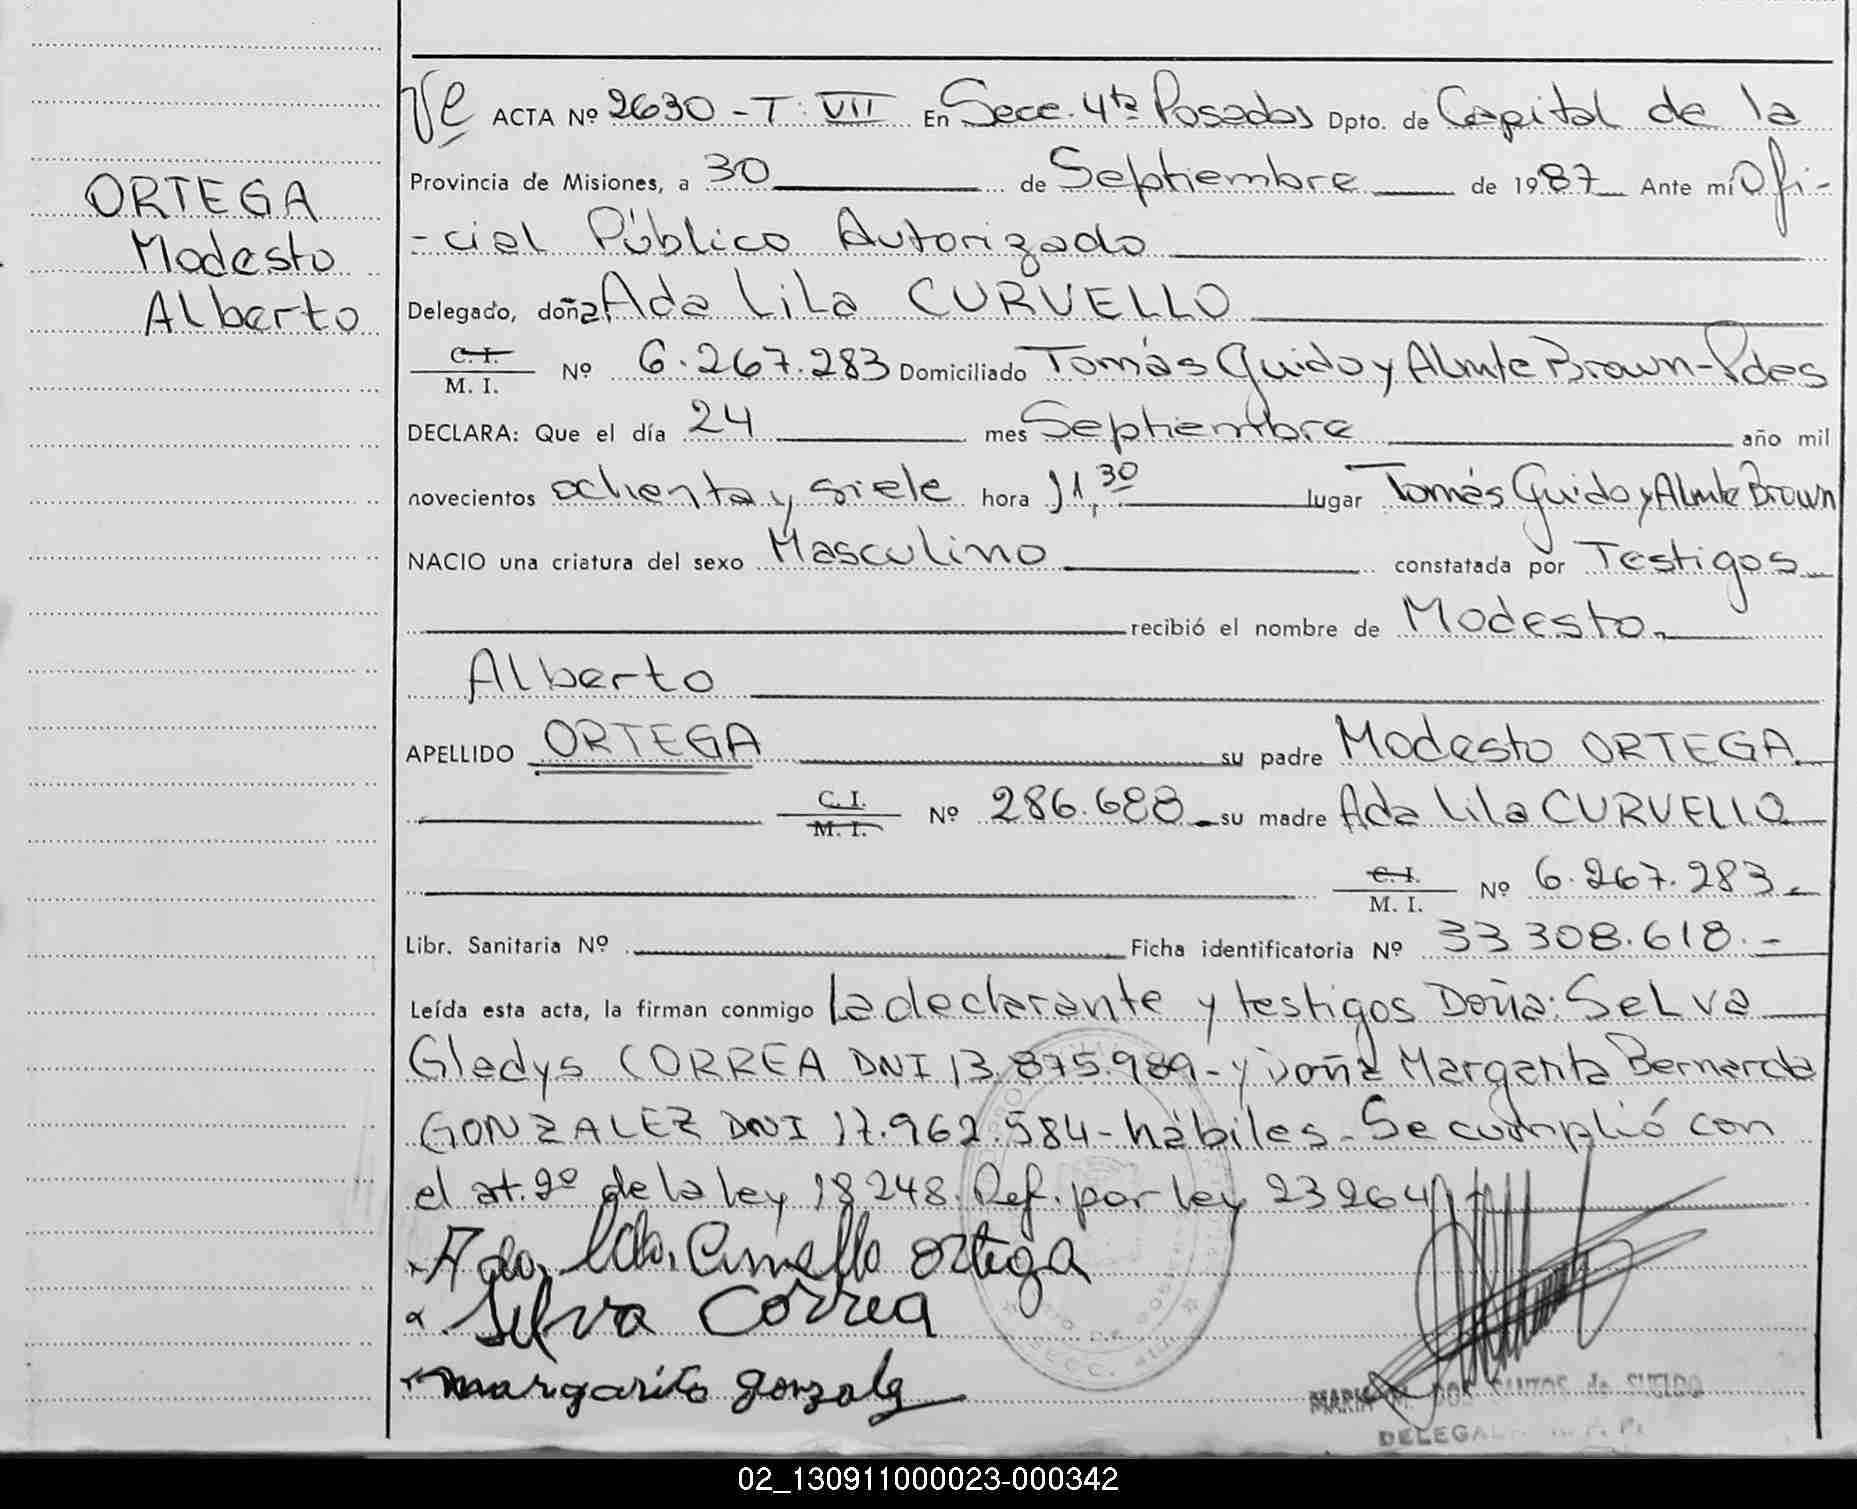 ORTEGA
Modesto
Alberto
ACTA Nº 2630 - T: VII En Secc. 4ta Posadas Dpto. de Capital de la
Provincia de Misiones, a 30 de Septiembre de 1987 Ante mí Ofi-
-cial Público Autorizado
Delegado, doña Ada Lila CURVELLO
C. I.
M. I. Nº 6.267.283 Domiciliado Tomás Guido y Almte Brown-Pdas
DECLARA: Que el día 24 mes Septiembre año mil
novecientos ochenta y siete hora 11,30 lugar Tomás Guido y Almte Brown
NACIO una criatura del sexo Masculino constatada por Testigos
recibió el nombre de Modesto
Alberto
APELLIDO ORTEGA su padre Modesto ORTEGA
C. I.
M. I. Nº 286.688 su madre Ada Lila CURVELLO
C. I.
M. I. Nº 6.267.283
Libr. Sanitaria Nº Ficha identificatoria Nº 33 308.618.-
Leída esta acta, la firman conmigo la declarante y testigos Doña: Selva
Gladys CORREA DNI 13.875.989- y doña Margarita Bernarda
GONZALEZ DNI 17.962.584- hábiles. Se cumplió con
el art. 2º de la ley 18248. Ref. por ley 23264
Ada Lila Curvello Ortega
Selva Correa
margarita gonzalez
MARIA M. DOS SANTOS de SUELDO
02_130911000023-000342